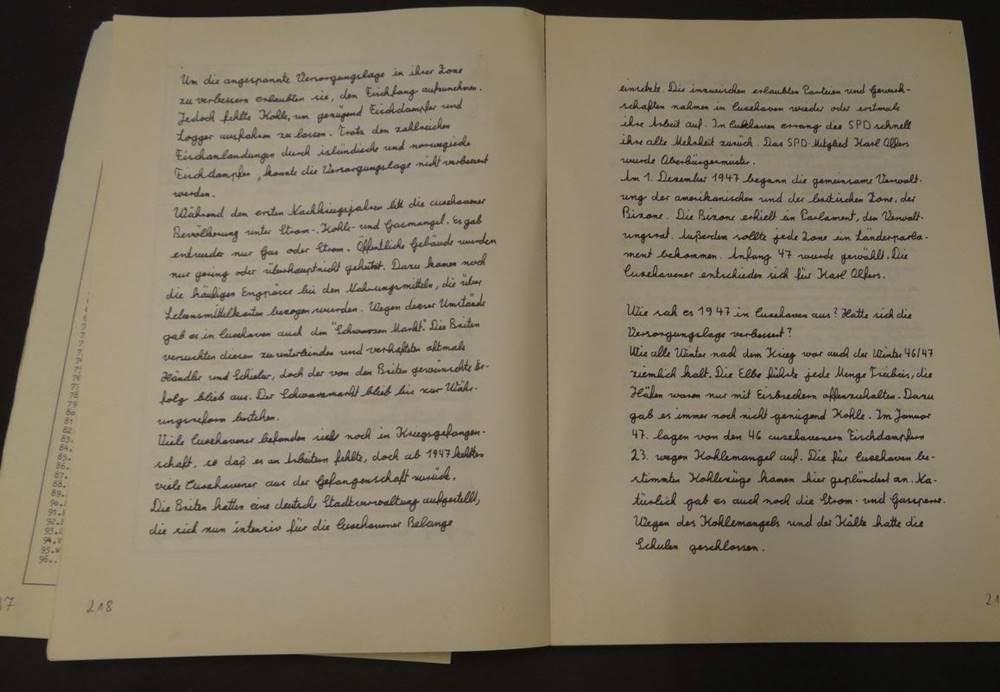 Um die angespannte Versorgungslage in ihrer Zone
zu verbessern erlaubten sie, den Fischfang aufzunehmen.
Jedoch fehlte Kohle, um genügend Fischdampfer und
Logger ausfahren zu lassen. Trotz den zahlreichen
Fischanlandungen durch isländische und norwegische
Fischdampfer, konnte die Versorgungslage nicht verbessert
werden.
Während den ersten Nachkriegsjahren litt die cuxhavener
Bevölkerung unter Strom-, Kohle- und Gasmangel. Es gab
entweder nur Gas oder Strom. Öffentliche Gebäude wurden
nur gering oder überhauptnicht geheitzt. Dazu kamen noch
die häufigen Engpässe bei den Nahrungsmitteln, die über
Lebensmittelkarten bezogen wurden. Wegen dieser Umstände
gab es in Cuxhaven auch den "Schwarzen Markt". Die Briten
versuchten diesen zu unterbinden und verhafteten oftmals
Händler und Schieber, doch der von den Briten gewünschte Er-
folg blieb aus. Der Schwarzmarkt blieb bis zur Wäh-
rungsreform bestehen.
Viele Cuxhavener befanden sich noch in Kriegsgefangen-
schaft, so daß es an Arbeitern fehlte, doch ab 1947 kehrten
viele Cuxhavener aus der Gefangenschaft zurück.
Die Briten hatten eine deutsche Stadtverwaltung aufgestellt,
die sich nun intensiv für die Cuxhavener Belange
218
einsetzte. Die inzwischen erlaubten Parteien und Gewerk-
schaften nahmen in Cuxhaven wieder oder erstmals
ihre Arbeit auf. In Cuxhaven errang die SPD schnell
ihre alte Mehrheit zurück. Das SPD-Mitglied Karl Olfers
wurde Oberbürgermeister.
Am 1. Dezember 1947 begann die gemeinsame Verwalt-
ung der amerikanischen und der britischen Zone, der
Bizone. Die Bizone erhielt ein Parlament, den Verwalt-
ungsrat. Außerdem sollte jede Zone ein Länderparla-
ment bekommen. Anfang 47 wurde gewählt. Die
Cuxhavener entschieden sich für Karl Olfers.
Wie sah es 1947 in Cuxhaven aus? Hatte sich die
Versorgungslage verbessert?
Wie alle Winter nach dem Krieg war auch der Winter 46/47
ziemlich kalt. Die Elbe führte jede Menge Treibeis, die
Häfen waren nur mit Eisbrechern offenzuhalten. Dazu
gab es immer noch nicht genügend Kohle. Im Januar
47 lagen von den 46 cuxhavenern Fischdampfern
23 wegen Kohlemangel auf. Die für Cuxhaven be-
stimmten Kohlezüge kamen hier geplündert an. Na-
türlich gab es auch noch die Strom- und Gassperre.
Wegen des Kohlemangels und der Kälte hatte die
Schulen geschlossen.